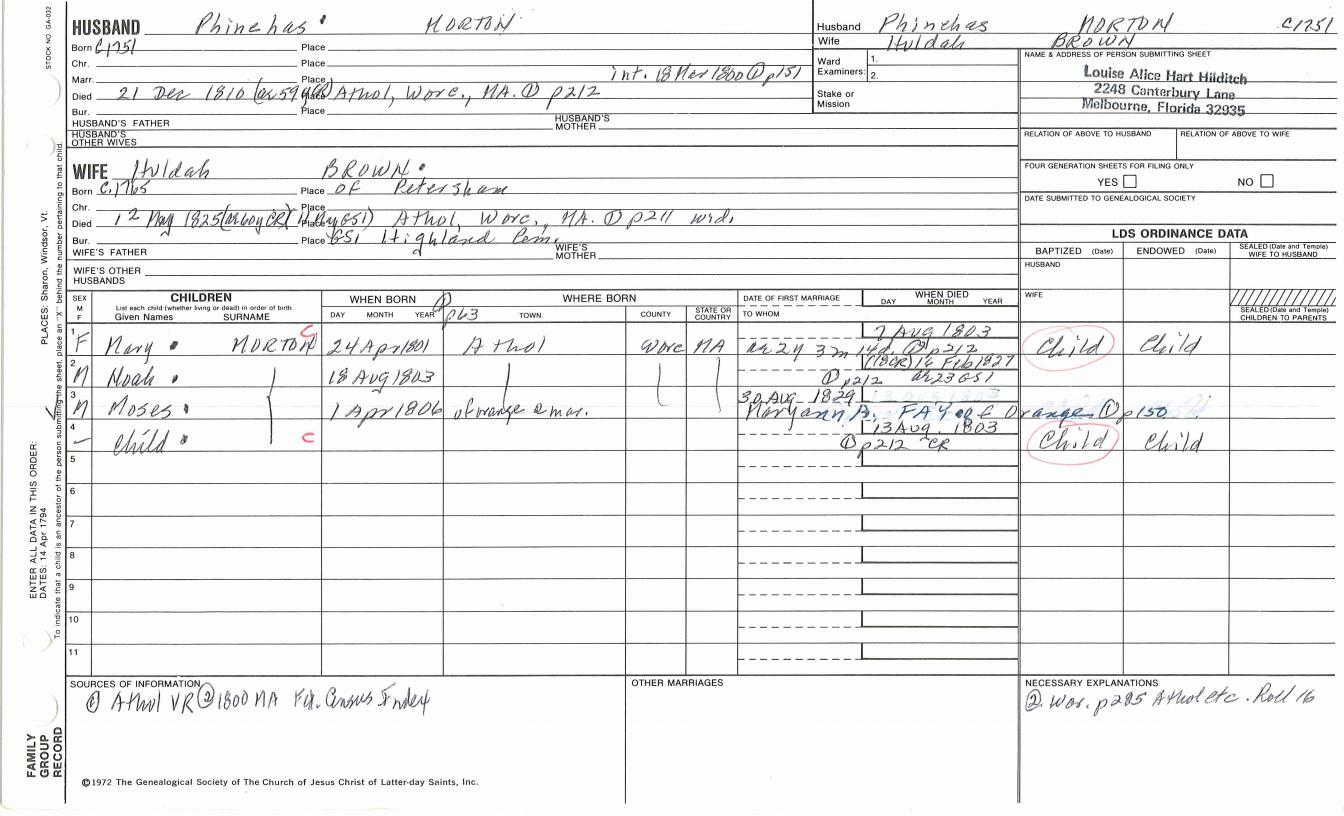 STOCK NO. GA-032
HUSBAND Phinehas MORTON
Born C1751 Place
Chr. Place
Marr. Place int. 18 Mar 1800 ① p151
Died 21 Dec 1810 (ae 59 Place Athol, Worc., MA. ① p212
Bur. Place
HUSBAND'S FATHER HUSBAND'S MOTHER
HUSBAND'S OTHER WIVES
WIFE Huldah BROWN
Born C.1765 Place of Petersham
Chr. Place
Died 12 May 1825 (ae 60y CR) Place Athol, Worc., MA. ① p211 wid.
Bur. Place GS1 Highland Cem.
WIFE'S FATHER WIFE'S MOTHER
WIFE'S OTHER HUSBANDS
Husband Phinehas MORTON C1751
Wife Huldah BROWN
Ward Examiners: 1.
2.
Stake or Mission
NAME & ADDRESS OF PERSON SUBMITTING SHEET
Louise Alice Hart Hilditch
2248 Canterbury Lane
Melbourne, Florida 32935
RELATION OF ABOVE TO HUSBAND RELATION OF ABOVE TO WIFE
FOUR GENERATION SHEETS FOR FILING ONLY
YES NO
DATE SUBMITTED TO GENEALOGICAL SOCIETY
LDS ORDINANCE DATA
BAPTIZED (Date) ENDOWED (Date) SEALED (Date and Temple) WIFE TO HUSBAND
HUSBAND
WIFE
SEALED (Date and Temple) CHILDREN TO PARENTS
SEX M F
CHILDREN
List each child (whether living or dead) in order of birth
Given Names SURNAME
WHEN BORN ① p63
DAY MONTH YEAR
WHERE BORN
TOWN COUNTY STATE OR COUNTRY
DATE OF FIRST MARRIAGE
TO WHOM
WHEN DIED
DAY MONTH YEAR
1 F Mary MORTON C 24 Apr 1801 Athol Worc MA 7 Aug 1803
ae 2y 3m 14d. ① p212 Child Child
2 M Noah 18 Aug 1803 (18CR) 16 Feb 1827
① p212 ae 23 GS1
3 M Moses 1 Apr 1806 of orange @ mar. 30 Aug. 1829
Maryann A. FAY of Orange ① p150
4 - Child C 13 Aug. 1803
① p212 CR Child Child
5
6
7
8
9
10
11
SOURCES OF INFORMATION
① Athol VR ② 1800 MA Fed. Census Index
OTHER MARRIAGES
NECESSARY EXPLANATIONS
② Wor. p285 Athol etc. Roll 16
©1972 The Genealogical Society of The Church of Jesus Christ of Latter-day Saints, Inc.
FAMILY GROUP RECORD
ENTER ALL DATA IN THIS ORDER:
DATES: 14 Apr 1794
PLACES: Sharon, Windsor, Vt.
To indicate that a child is an ancestor of the person submitting the sheet, place an "X" behind the number pertaining to that child.